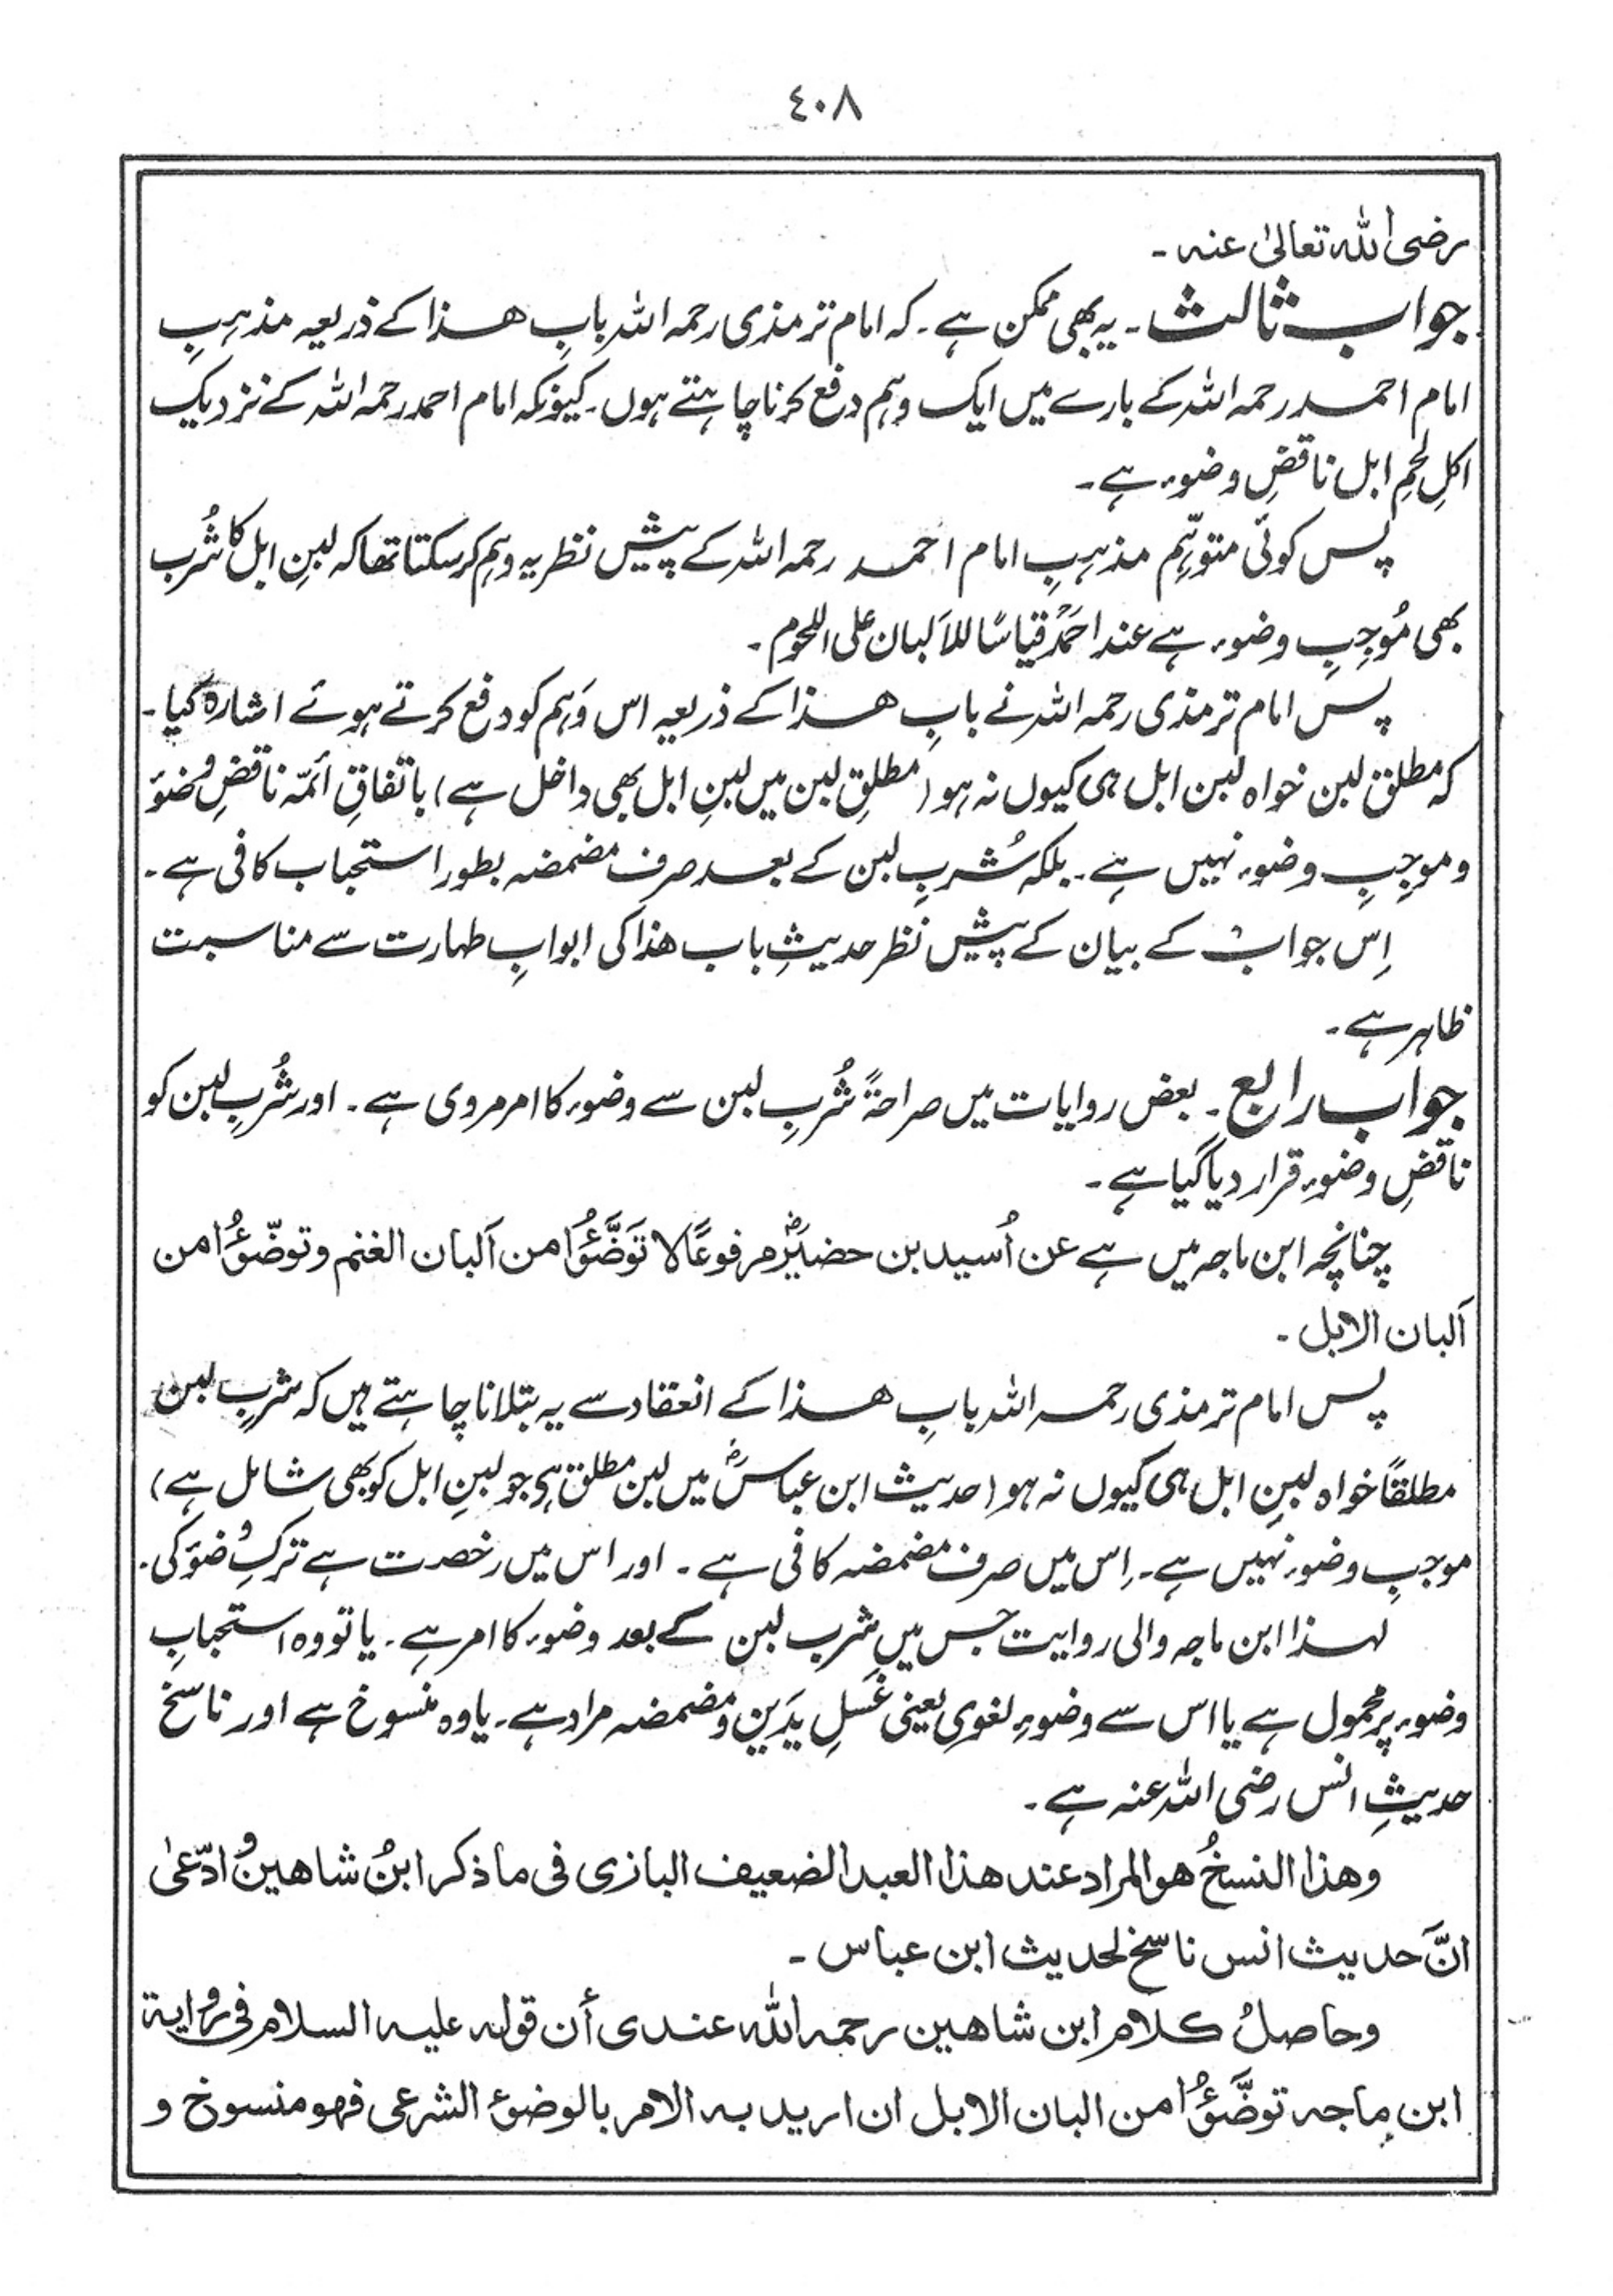 ٤٠٨
رضی اللہ تعالیٰ عنہ ۔
جواب ثالث ۔ یہ بھی ممکن ہے ۔ کہ امام ترمذی رحمہ اللہ بابِ ھذا کے ذریعہ مذہبِ
امام احمد رحمہ اللہ کے بارے میں ایک وہم دفع کرنا چاہتے ہوں ۔ کیونکہ امام احمد رحمہ اللہ کے نزدیک
اکلِ لحمِ ابل ناقضِ وضوء ہے ۔
پس کوئی متوہِّم مذہبِ امام احمد رحمہ اللہ کے پیش نظر یہ وہم کر سکتا تھا کہ لبنِ ابل کا شُرب
بھی مُوجِبِ وضوء ہے عند احمدؒ قیاسًا للاَلبان علی اللحوم ۔
پس امام ترمذی رحمہ اللہ نے بابِ ھذا کے ذریعہ اس وَہم کو دفع کرتے ہوئے اشارہ کیا ۔
کہ مطلق لبن خواہ لبن ابل ہی کیوں نہ ہو (مطلقِ لبن میں لبنِ ابل بھی داخل ہے) باتفاقِ أئمّہ ناقضِ وُضوَ
و موجِبِ وضوء نہیں ہے ۔ بلکہ شُربِ لبن کے بعد صرف مضمضہ بطور استحباب کافی ہے ۔
اِس جواب کے بیان کے پیش نظر حدیثِ باب ھذا کی ابوابِ طہارت سے مناسبت
ظاہر ہے ۔
جواب رابع ۔ بعض روایات میں صراحۃً شُربِ لبن سے وضوء کا امر مروی ہے ۔ اور شُربِ لبن کو
ناقضِ وضوء قرار دیا گیا ہے ۔
چنانچہ ابن ماجہ میں ہے عن اُسید بن حضیرؓ مرفوعًا لا تَوَضَّئُوا من اَلبان الغنم و توضّئُوا من
اَلبان الابل ۔
پس امام ترمذی رحمہ اللہ بابِ ھذا کے انعقاد سے یہ بتلانا چاہتے ہیں کہ شربِ لبن
مطلقًا خواہ لبنِ ابل ہی کیوں نہ ہو (حدیث ابن عباسؓ میں لبن مطلق ہے جو لبنِ ابل کو بھی شامل ہے)
موجبِ وضوء نہیں ہے ۔ اِس میں صرف مضمضہ کافی ہے ۔ اور اس میں رخصت ہے ترکِ وُضوَ کی ۔
لہذا ابن ماجہ والی روایت جس میں شربِ لبن کے بعد وضوء کا امر ہے ۔ یا تو وہ استحبابِ
وضوء پر محمول ہے یا اس سے وضوءِ لغوی یعنی غَسلِ یَدَین و مضمضہ مراد ہے ۔ یا وہ منسوخ ہے اور ناسخ
حدیثِ انس رضی اللہ عنہ ہے ۔
وھذا النسخُ ھو المراد عند ھذا العبد الضعیف البازی فی ما ذکر ابنُ شاھین و ادّعیٰ
انَّ حدیث انس ناسخ لحدیث ابن عباس ۔
وحاصلُ کلام ابن شاھین رحمہ اللہ عندی أن قولہ علیہ السلام فی روایۃ
ابن ماجہ توضَّئُوا من البان الابل ان ارید بہ الامر بالوضوٗ الشرعی فھو منسوخ و